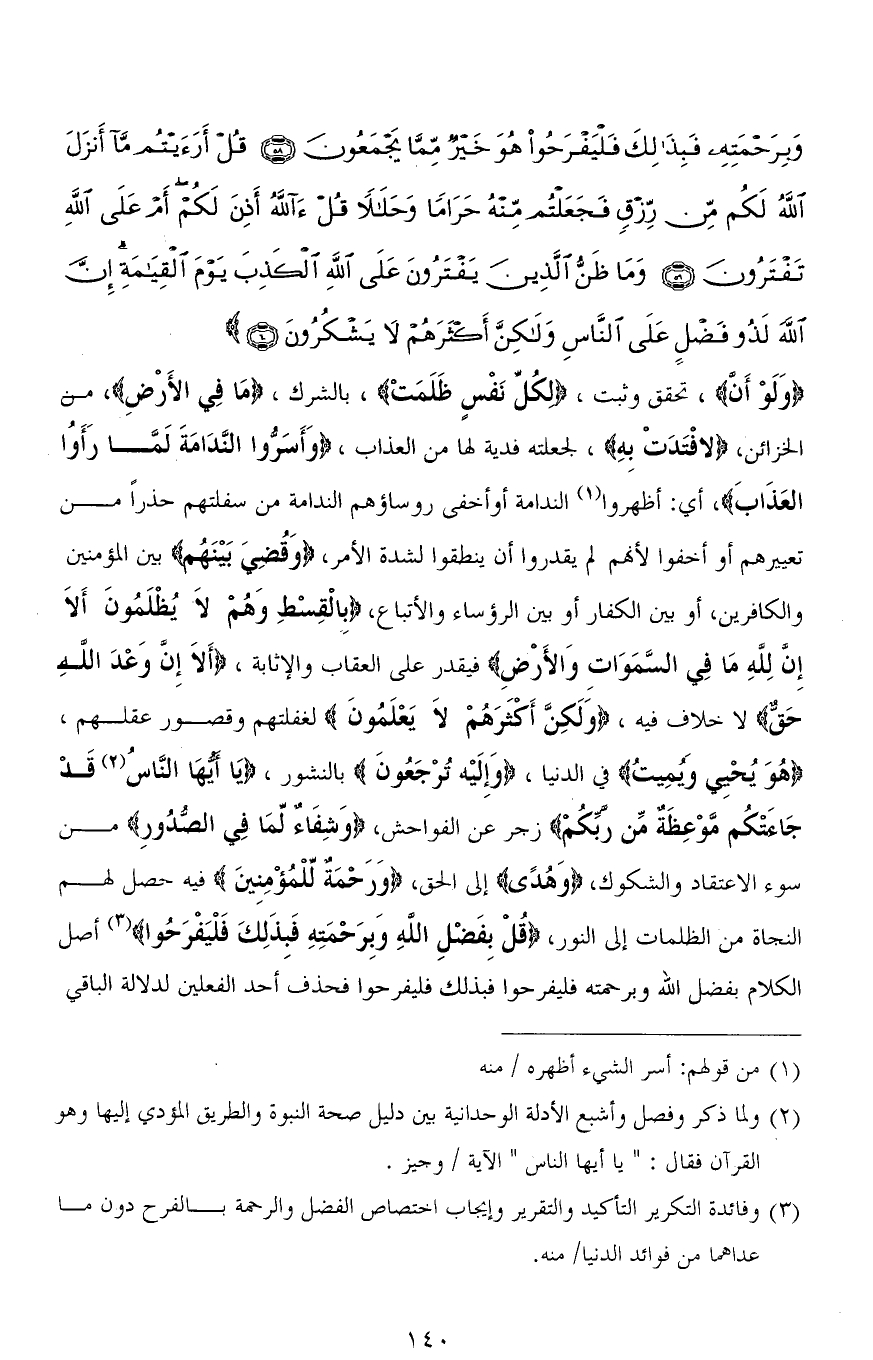 وَبِرَحْمَتِهِۦ فَبِذَٰلِكَ فَلْيَفْرَحُواْ هُوَ خَيْرٌ مِّمَّا يَجْمَعُونَ ٥٨ قُلْ أَرَءَيْتُم مَّآ أَنزَلَ
ٱللَّهُ لَكُم مِّن رِّزْقٍ فَجَعَلْتُم مِّنْهُ حَرَامًا وَحَلَٰلًا قُلْ ءَآللَّهُ أَذِنَ لَكُمْۖ أَمْ عَلَى ٱللَّهِ
تَفْتَرُونَ ٥٩ وَمَا ظَنُّ ٱلَّذِينَ يَفْتَرُونَ عَلَى ٱللَّهِ ٱلْكَذِبَ يَوْمَ ٱلْقِيَٰمَةِۗ إِنَّ
ٱللَّهَ لَذُو فَضْلٍ عَلَى ٱلنَّاسِ وَلَٰكِنَّ أَكْثَرَهُمْ لَا يَشْكُرُونَ ٦٠ ﴾
﴿وَلَوْ أَنَّ﴾ ، تحقق وثبت ، ﴿لِكُلِّ نَفْسٍ ظَلَمَتْ﴾ ، بالشرك ، ﴿مَا فِي الأَرْضِ﴾، مــن
الخزائن، ﴿لافْتَدَتْ بِهِ﴾ ، لجعلته فدية لها من العذاب ، ﴿وَأَسَرُّوا النَّدَامَةَ لَمَّـــا رَأَوُا
العَذَابَ﴾، أي: أظهروا(١) الندامة أوأخفى روساؤهم الندامة من سفلتهم حذراً مـــن
تعييرهم أو أخفوا لأنهم لم يقدروا أن ينطقوا لشدة الأمر، ﴿وَقُضِيَ بَيْنَهُم﴾ بين المؤمنين
والكافرين، أو بين الكفار أو بين الرؤساء والأتباع، ﴿بِالْقِسْطِ وَهُمْ لاَ يُظْلَمُونَ أَلاَ
إِنَّ لِلَّهِ مَا فِي السَّمَوَاتِ وَالأَرْضِ﴾ فيقدر على العقاب والإثابة ، ﴿أَلاَ إِنَّ وَعْدَ اللَّــهِ
حَقٌّ﴾ لا خلاف فيه ، ﴿وَلَكِنَّ أَكْثَرَهُمْ لاَ يَعْلَمُونَ ﴾ لغفلتهم وقصــور عقلــهم ،
﴿هُوَ يُحْيِي وَيُمِيتُ﴾ في الدنيا ، ﴿وَإِلَيْه تُرْجَعُونَ ﴾ بالنشور ، ﴿يَا أَيُّهَا النَّاسُ(٢) قَــدْ
جَاءَتْكُم مَّوْعِظَةٌ مِّن رَّبِّكُمْ﴾ زجر عن الفواحش، ﴿وَشِفَاءٌ لِّمَا فِي الصُّدُورِ﴾ مـــن
سوء الاعتقاد والشكوك، ﴿وَهُدًى﴾ إلى الحق، ﴿وَرَحْمَةٌ لِّلْمُؤْمِنِينَ ﴾ فيه حصل لهـــم
النجاة من الظلمات إلى النور، ﴿قُلْ بِفَضْلِ اللَّهِ وَبِرَحْمَتِهِ فَبِذَلِكَ فَلْيَفْرَحُوا﴾(٣) أصل
الكلام بفضل الله وبرحمته فليفرحوا فبذلك فليفرحوا فحذف أحد الفعلين لدلالة الباقي
(١) من قولهم: أسر الشيء أظهره / منه
(٢) ولما ذكر وفصل وأشبع الأدلة الوحدانية بين دليل صحة النبوة والطريق المؤدي إليها وهو
القرآن فقال : " يا أيها الناس " الآية / وجيز .
(٣) وفائدة التكرير التأكيد والتقرير وإيجاب اختصاص الفضل والرحمة بـــالفرح دون مــا
عداهما من فوائد الدنيا/ منه.
١٤٠